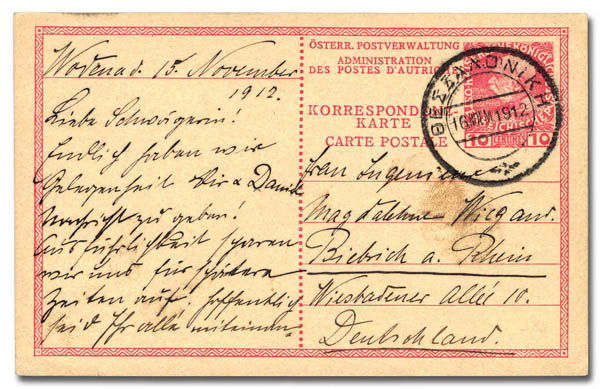 Wodena d. 15. November
1912.
Liebe Schwägerin!
Endlich haben wir
Gelegenheit Dir & Daniel
Nachricht zu geben!
Ausführlichkeit sparen
wir uns für spätere
Zeiten auf. Hoffentlich
seid Ihr alle miteinan-
ÖSTERR. POSTVERWALTUNG
ADMINISTRATION
DES POSTES D'AUTRICHE
KORRESPONDENZ-
KARTE
CARTE POSTALE
16 1912
10 10
Frau Ingenieur
Magdalene Wiegand
Biebrich a. Rhein
Wiesbadener Allée 10.
Deutschland.